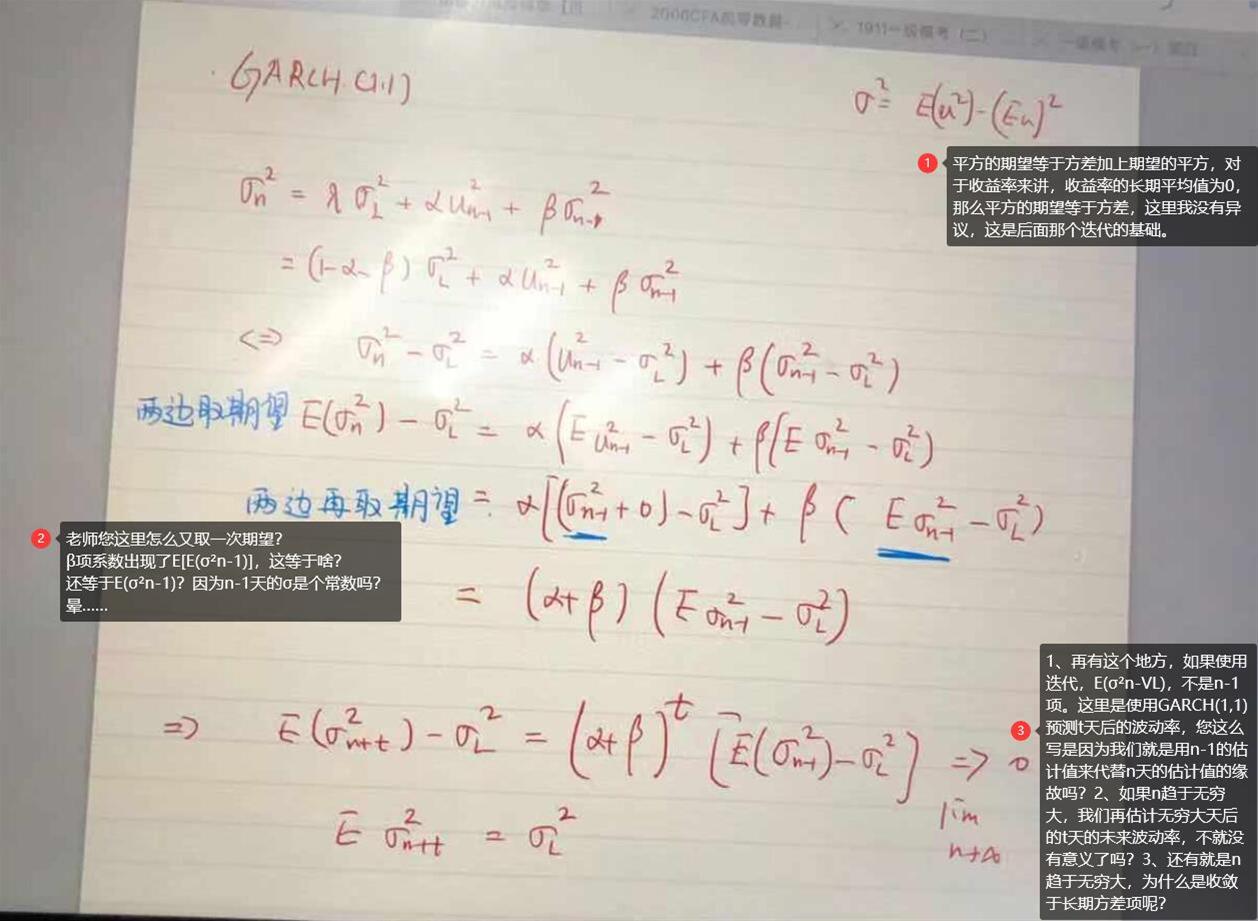 2006CFA
1911一级模考（二）
GARCH(1.1)
σ² = E(u²)-(Eu)²
1
平方的期望等于方差加上期望的平方，对
于收益率来讲，收益率的长期平均值为0，
那么平方的期望等于方差，这里我没有异
议，这是后面那个迭代的基础。
σn² = λσL² + αu²n-1 + βσ²n-1
= (1-α-β) σL² + αu²n-1 + βσ²n-1
<=> σn² - σL² = α(u²n-1 - σL²) + β(σ²n-1 - σL²)
两边取期望 E(σn²) - σL² = α(E u²n-1 - σL²) + β(E σ²n-1 - σL²)
两边再取期望 = α[(σ²n-1 + 0) - σL²] + β( E σ²n-1 - σL²)
2
老师您这里怎么又取一次期望？
β项系数出现了E[E(σ²n-1)]，这等于啥？
还等于E(σ²n-1)？因为n-1天的σ是个常数吗？
晕......
= (α+β) (E σ²n-1 - σL²)
=> E(σ²n+t) - σL² = (α+β)^t [E(σ²n-1) - σL²] => 0
lim
n→∞
E σ²n+t = σL²
3
1、再有这个地方，如果使用
迭代，E(σ²n-VL)，不是n-1
项。这里是使用GARCH(1,1)
预测t天后的波动率，您这么
写是因为我们就是用n-1的估
计值来代替n天的估计值的缘
故吗？2、如果n趋于无穷
大，我们再估计无穷大天后
的t天的未来波动率，不就没
有意义了吗？3、还有就是n
趋于无穷大，为什么是收敛
于长期方差项呢？